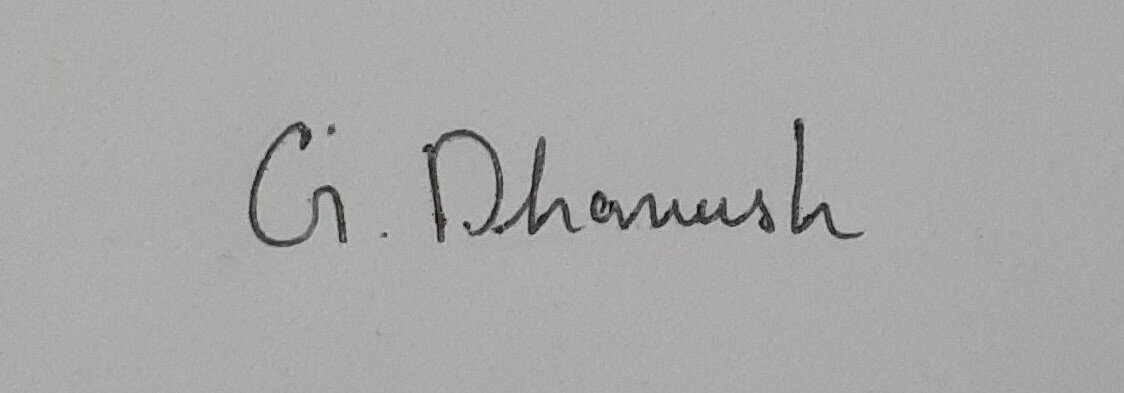 G. Dhanush